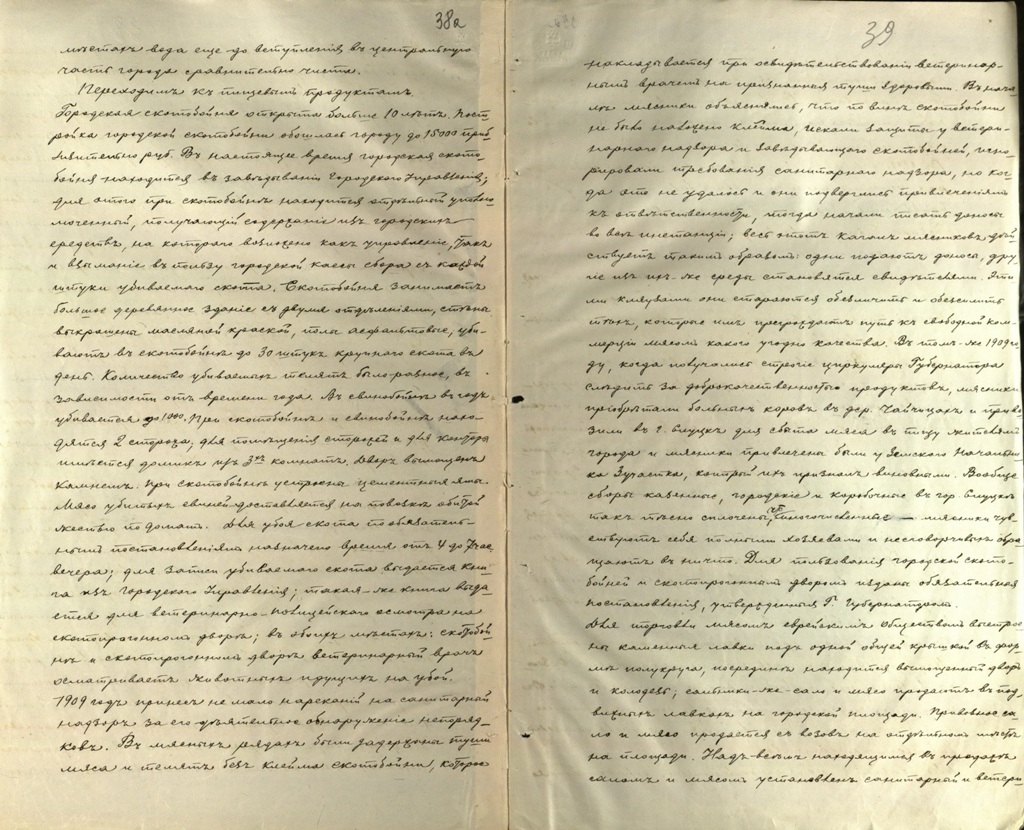 38а
мѣстахъ вода еще до вступленія въ центральную
часть города сравнительно чиста.
Переходимъ къ пищевымъ продуктамъ.
Городская скотобойня открыта больше 10 лѣтъ. Пост-
ройка городской скотобойни обошлась городу до 15000 приб-
лизительно руб. Въ настоящее время городская ското-
бойня находится въ завѣдываніи Городского Управленія;
для этого при скотобойнѣ находится отдѣльный уполно-
моченный, получающій содержаніе изъ городскихъ
средствъ, на котораго возложено какъ управленіе, такъ
и взыманіе въ пользу городской кассы сбора съ каждой
штуки убиваемаго скота. Скотобойня занимаетъ
большое деревянное зданіе съ двумя отдѣленіями, стѣны
выкрашены масляной краской, полы асфальтовые, уби-
ваютъ въ скотобойнѣ до 30 штукъ крупнаго скота въ
день. Количество убиваемыхъ телятъ было разное, въ
зависимости отъ времени года. Въ свинобойнѣ въ годъ
убивается до 1000. При скотобойнѣ и свинобойнѣ нахо-
дятся 2 сторожа, для помѣщенія сторожей и для конторы
имѣется домикъ изъ 3хъ комнатъ. Дворъ вымощенъ
камнемъ. При скотобойнѣ устроены цементныя ямы.
Мясо убитыхъ свиней доставляется на повозкѣ обитой
жестью по домамъ. Для убоя скота по обязатель-
нымъ постановленіямъ назначено время отъ 4 до 7 час.
вечера; для записи убиваемаго скота выдается кни-
га изъ Городского Управленія; такая-же книга выда-
ется для ветеринарно-полицейскаго осмотра на
скотопрогонномъ дворѣ; въ обоихъ мѣстахъ: скотобой-
нѣ и скотопрогонномъ дворѣ ветеринарный врачъ
осматриваетъ животныхъ идущихъ на убой.
1909 годъ принесъ не мало нареканій на санитарный
надзоръ за его дѣятельное обнаруженіе непоряд-
ковъ. Въ мясныхъ рядахъ были задержаны туши
мяса и телятъ безъ клейма скотобойни, которое
39
накладывается при освидѣтельствованіи ветеринар-
нымъ врачемъ на признанныя туши здоровыми. Въ нача-
лѣ мясники объясняютъ, что по винѣ скотобойни
не было наложено клейма, искали защиты у ветери-
нарнаго надзора и завѣдывающаго скотобойней, игно-
рировали требованія санитарнаго надзора, но ког-
да это не удалось и они подверглись привлеченіямъ
къ отвѣтственности, тогда начали писать доносы
во всѣ инстанціи; весь этотъ кагалъ мясниковъ дѣй-
ствуетъ такимъ образомъ: одни подаютъ доносы, дру-
гіе изъ ихъ-же среды становятся свидѣтелями. Эти-
ми кляузами они стараются обезличить и обезсилить
тѣхъ, которые имъ преграждаютъ путь къ свободной ком-
мерціи мясомъ какого угодно качества. Въ томъ-же 1909 го-
ду, когда получались строгіе циркуляры Губернатора
слѣдить за доброкачественностью продуктовъ, мясники
пріобрѣтали больныхъ коровъ въ дер. Чайчицахъ и приво-
зили въ г. Слуцкъ для сбыта мяса въ пищу жителямъ
города и мясники привлечены были у Земского Начальни-
ка 3 участка, который ихъ призналъ виновными. Вообще
сборы казенные, городскіе и коробочные въ гор. Слуцкѣ
такъ тѣсно сплочены, что мясники чув-
ствуютъ себя полными хозяевами и несговорчивыхъ обра-
щаютъ въ ничто. Для пользованія городской ското-
бойней и скотопрогоннымъ дворомъ изданы обязательныя
постановленія, утвержденныя Г. Губернаторомъ.
Для торговли мясомъ еврейскимъ Обществомъ выстрое-
ны каменныя лавки подъ одной общей крышей въ фор-
мѣ полукруга, посерединѣ находится вымощенный дворъ
и колодезь; свинники-же сало и мясо продаютъ въ под-
вижныхъ лавкахъ на городской площади. Привозное са-
ло и мясо продается съ возовъ на отдѣльномъ мѣстѣ
на площади. Надъ всѣмъ находящимся въ продажѣ
саломъ и мясомъ установленъ санитарный и ветери-